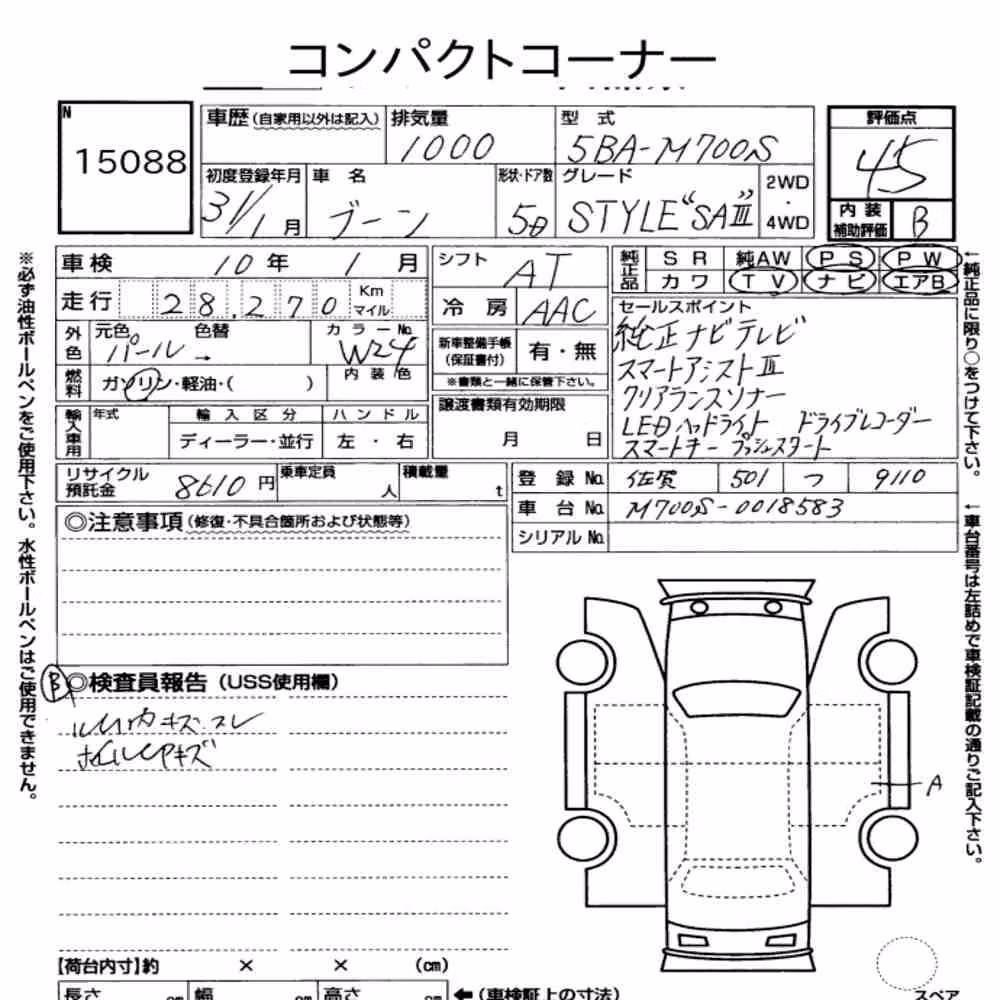 コンパクトコーナー
N
15088
車歴(自家用以外は記入)
排気量
1000
型 式
5BA-M700S
評価点
45
初度登録年月
31/1月
車 名
ブーン
形状・ドア数
5D
グレード
STYLE "SAⅢ"
2WD
・
4WD
内 装
補助評価
B
車検
10年 1月
シフト
AT
純正品
SR 純AW PS PW
カワ TV ナビ エアB
走行
28,270
Km
マイル
冷 房
AAC
セールスポイント
純正ナビテレビ
スマートアシストⅢ
クリアランスソナー
LEDヘッドライト ドライブレコーダー
スマートキー プッシュスタート
外色
元色
パール→
色替
カラーNo.
W24
新車整備手帳
(保証書付)
有・無
※書類と一緒に保管下さい。
燃料
ガソリン・軽油・( )
内 装 色
輸入車用
年式
輸 入 区 分
ディーラー・並行
ハ ン ド ル
左 ・ 右
譲渡書類有効期限
月 日
リサイクル
預託金
8610円
乗車定員
人
積載量
t
登 録 No.
佐賀 501 つ 9110
車 台 No.
M700S-0018583
シリアル No.
◎注意事項(修復・不具合箇所および状態等)
B
◎検査員報告(USS使用欄)
キズ スレ
キズ
A
【荷台内寸】約 × × (cm)
長さ cm
幅 cm
高さ cm
←(車検証上の寸法)
スペア
※必ず油性ボールペンをご使用下さい。水性ボールペンはご使用できません。
←純正品に限り○をつけて下さい。
←車台番号は左詰めで車検証記載の通りご記入下さい。